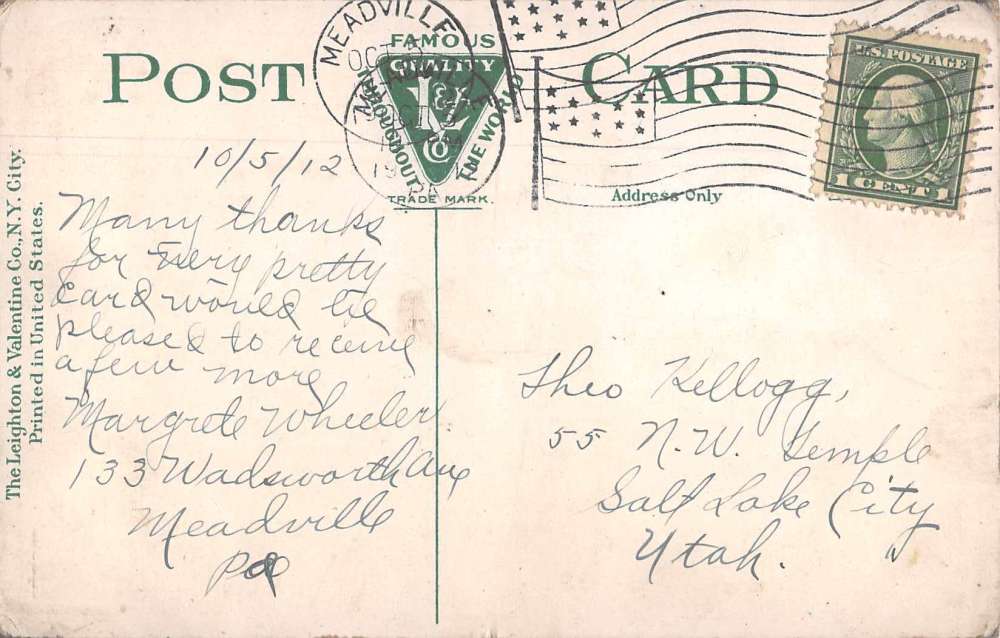 POST CARD
FAMOUS
QUALITY
L & V
Co
THROUGHOUT THE WORLD
TRADE MARK.
MEADVILLE
OCT
U.S. POSTAGE
1 CENT 1
Address Only
The Leighton & Valentine Co., N.Y. City.
Printed in United States.
10/5/12
Many thanks
for very pretty
card would be
pleased to receive
a few more
Margrete Wheeler
133 Wadsworth Ave
Meadville
Pa
Theo Kellogg,
55 N.W. Temple
Salt Lake City
Utah.